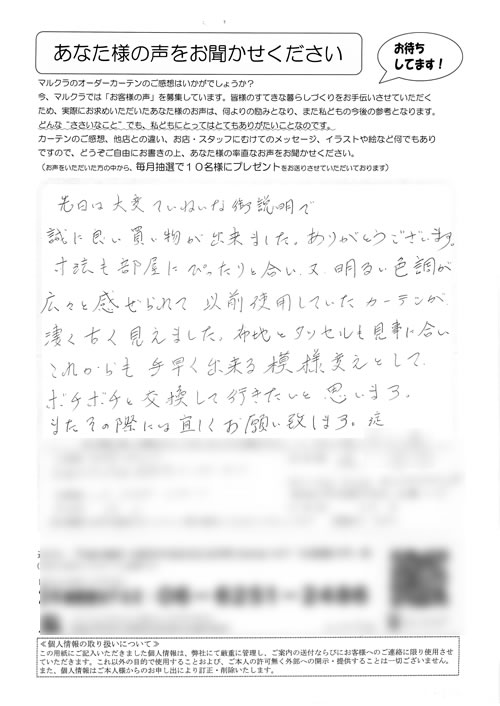 あなた様の声をお聞かせください
お待ち
してます！
マルクラのオーダーカーテンのご感想はいかがでしょうか？
今、マルクラでは「お客様の声」を募集しています。皆様のすてきな暮らしづくりをお手伝いさせていただく
ため、実際にお求めいただいたあなた様のお声は、何よりの励みとなり、また私どもの今後の参考となります。
どんな“ささいなこと”でも、私どもにとってはとてもありがたいことなのです。
カーテンのご感想、他店との違い、お店・スタッフにむけてのメッセージ、イラストや絵など何でもあり
ですので、どうぞご自由にお書きの上、あなた様の率直なお声をお聞かせください。
（お声をいただいた方の中から、毎月抽選で１０名様にプレゼントをお送りさせていただいております）
先日は大変ていねいな御説明で
誠に良い買い物が出来ました。ありがとうございます。
寸法も部屋にぴったりと合い、又、明るい色調が
広々と感ぜられて以前使用していたカーテンが
凄く古く見えました。布地とタッセルも見事に合い
これからも手早く出来る模様変えとして
ボチボチと交換して行きたいと思います。
またその際には宜しくお願い致します。
≪個人情報の取り扱いについて≫
この用紙にご記入いただきました個人情報は、弊社にて厳重に管理し、ご案内の送付ならびにお客様へのご連絡に限り使用させ
ていただきます。これ以外の目的で使用することおよび、ご本人の許可無く外部への開示・提供することは一切ございません。
また、個人情報はご本人様からのお申し出により訂正・削除いたします。